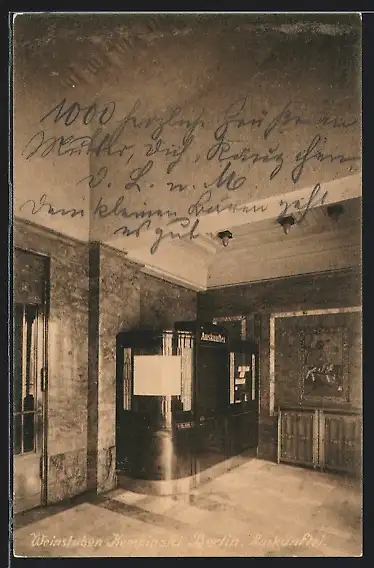 1000 herzliche Grüße an
Mutter, Dich,
D. L. u. M
dem kleinen Bären geht
es gut.
Auskunftei
Weinstuben Kempinski Berlin. Auskunftei.